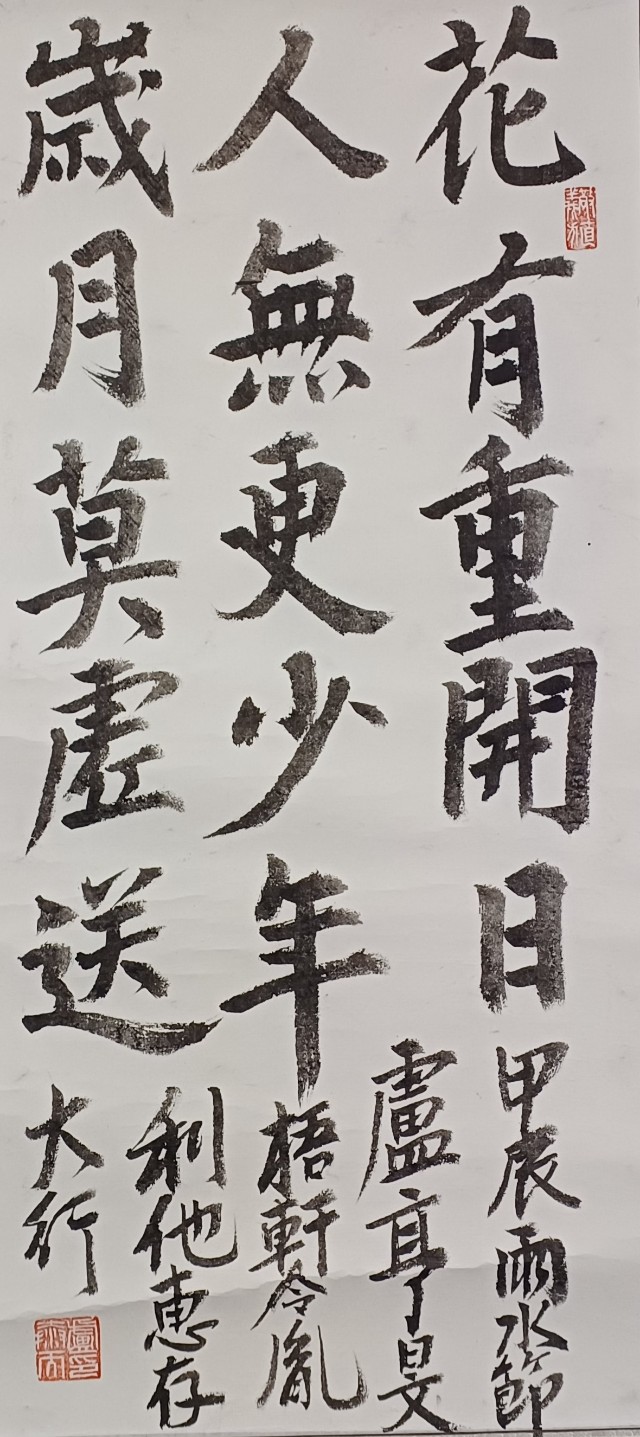 花有重開日
人無更少年
歲月莫虛送
甲辰雨水節
盧亨旻
梧軒令胤
利他惠存
大行